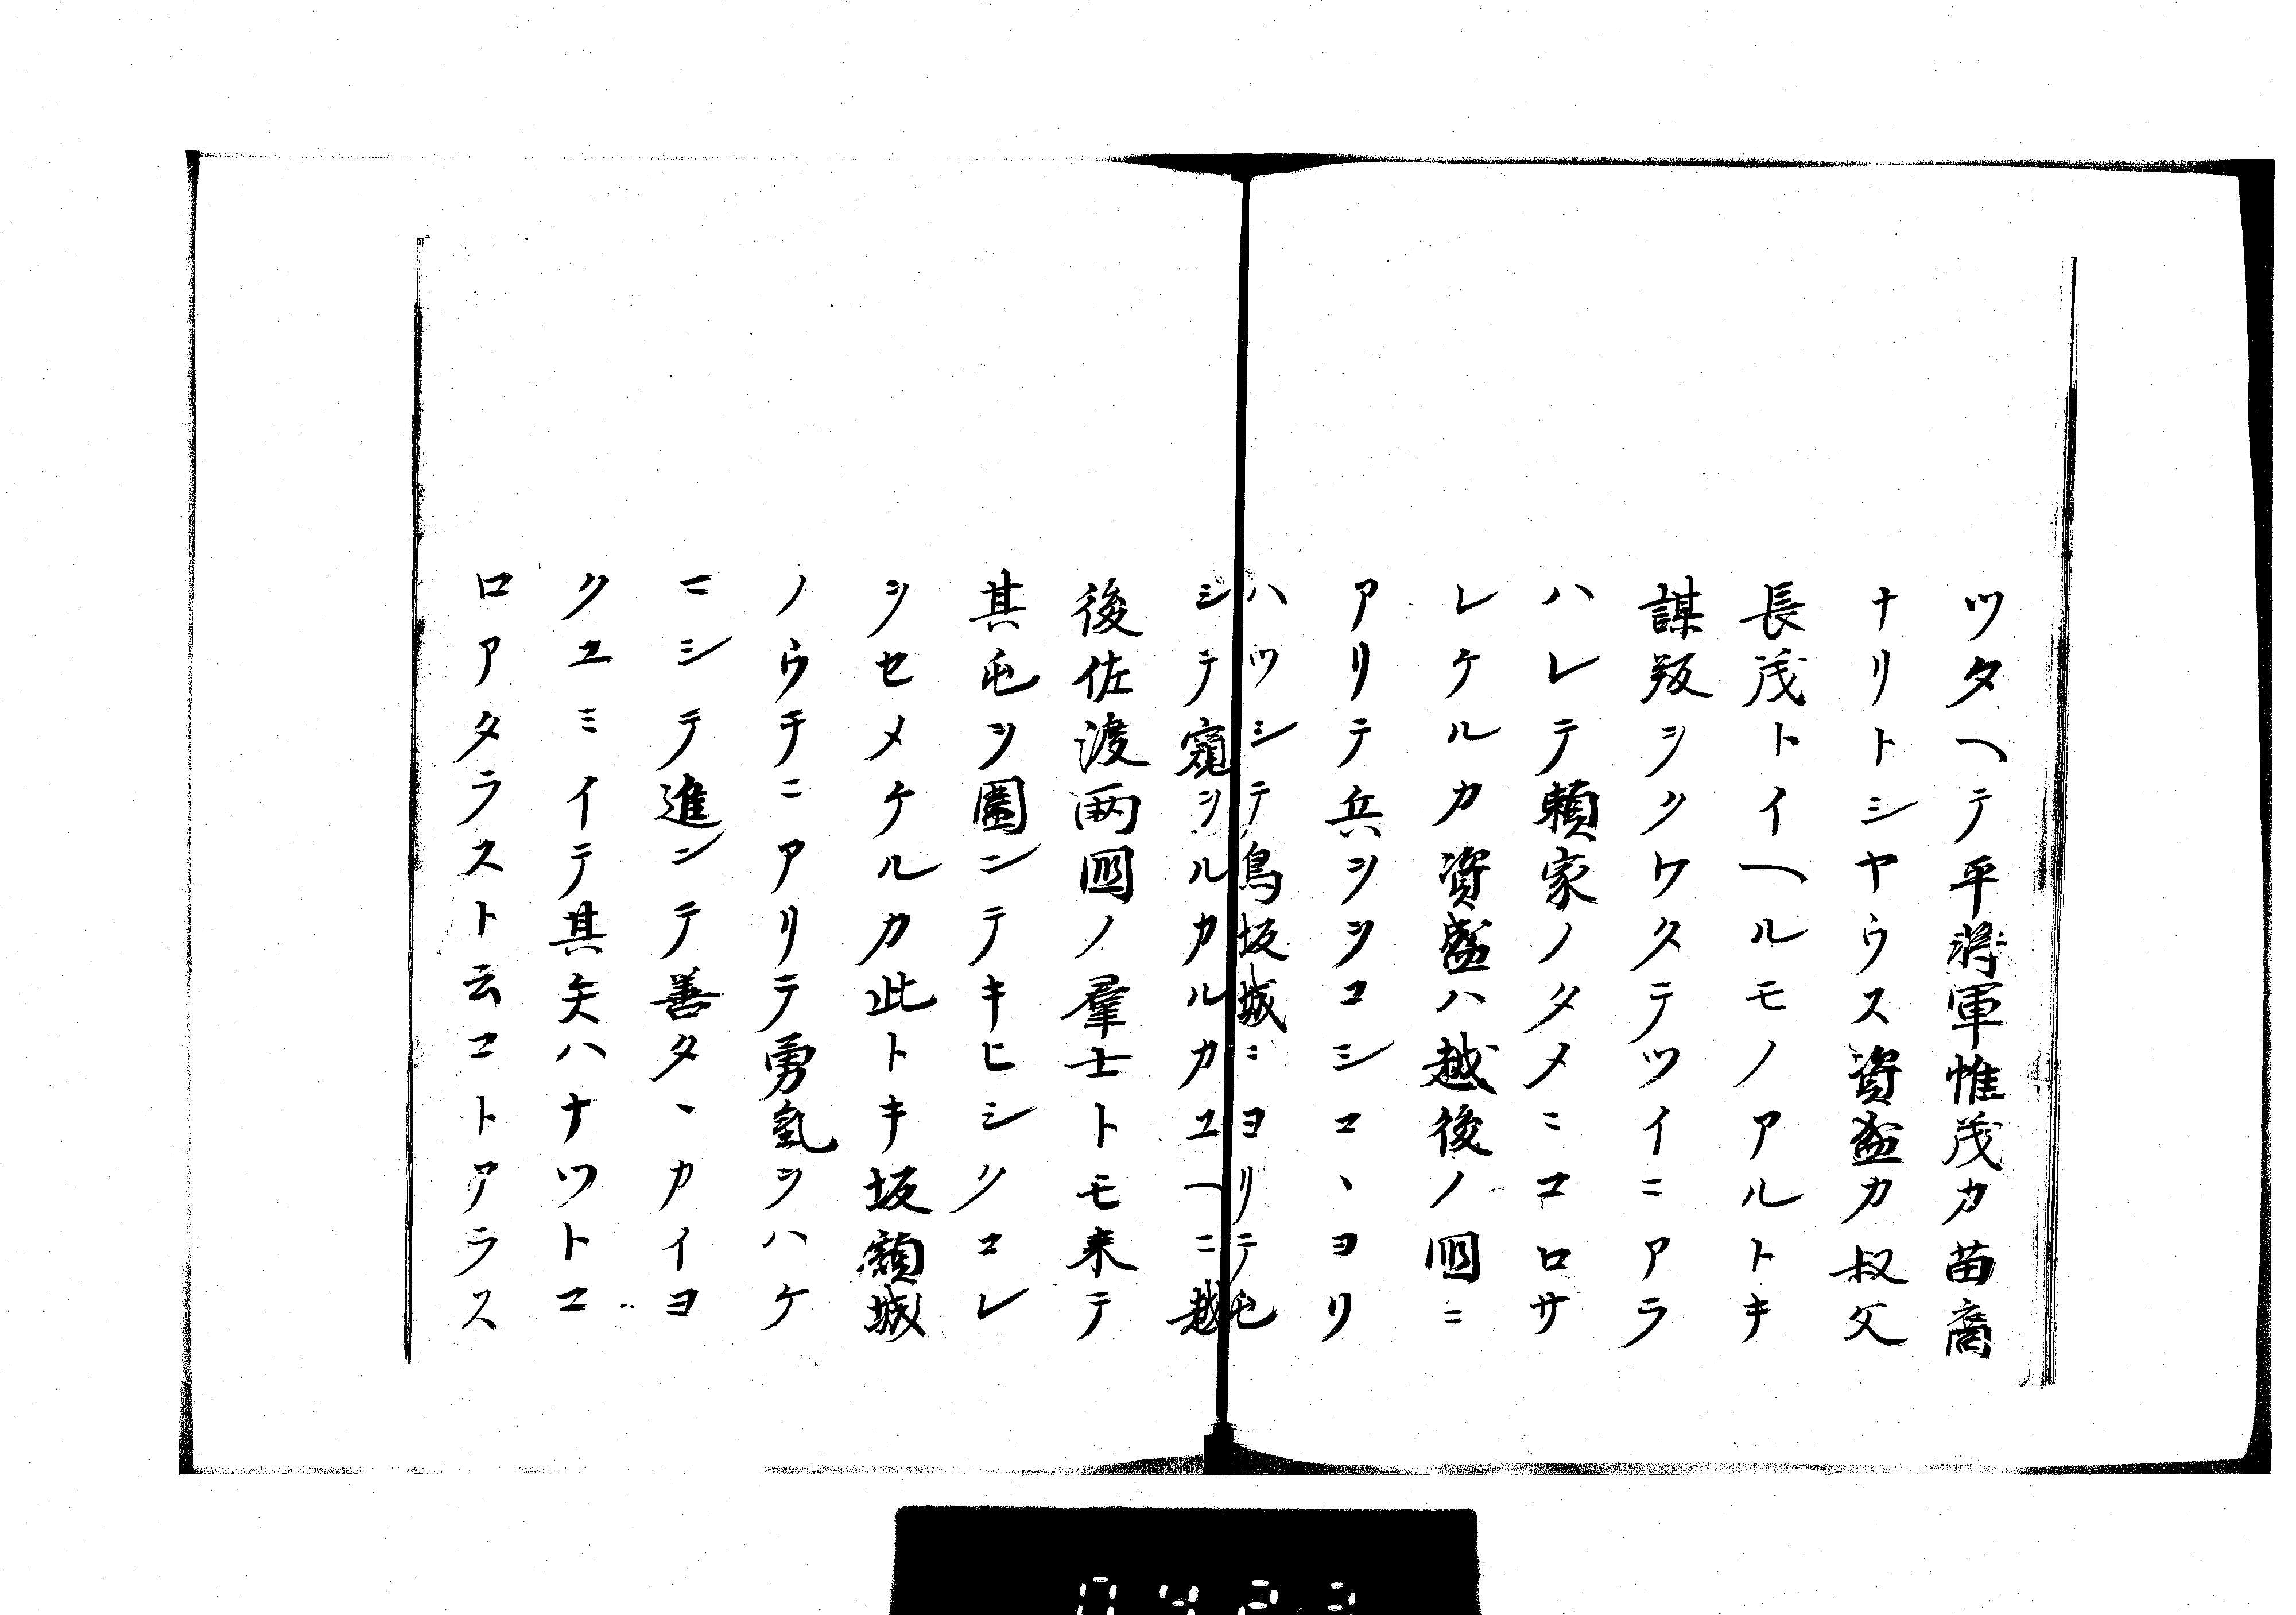 ツタヘテ平將軍惟茂カ苗裔
ナリトシヤウス資盛カ叔父
長茂トイヘルモノアルトキ
謀叛ヲクワタテツイニアラ
ハレテ頼家ノタメニコロサ
レケルカ資盛ハ越後ノ國ニ
アリテ兵ヲヲコシコヽヨリ
ハツシテ鳥坂城ニヨリテ屯
シテ窺ヲルカルカユヘニ越
後佐渡兩國ノ羣士トモ来テ
其屯ヲ圍ンテキヒシクコレ
ヲセメケルカ此トキ坂額城
ノウチニアリテ勇氣ヲハケ
ニシテ進ンテ善タヽカイヨ
クユミイテ其矢ハナツトコ
ロアタラスト云コトアラス